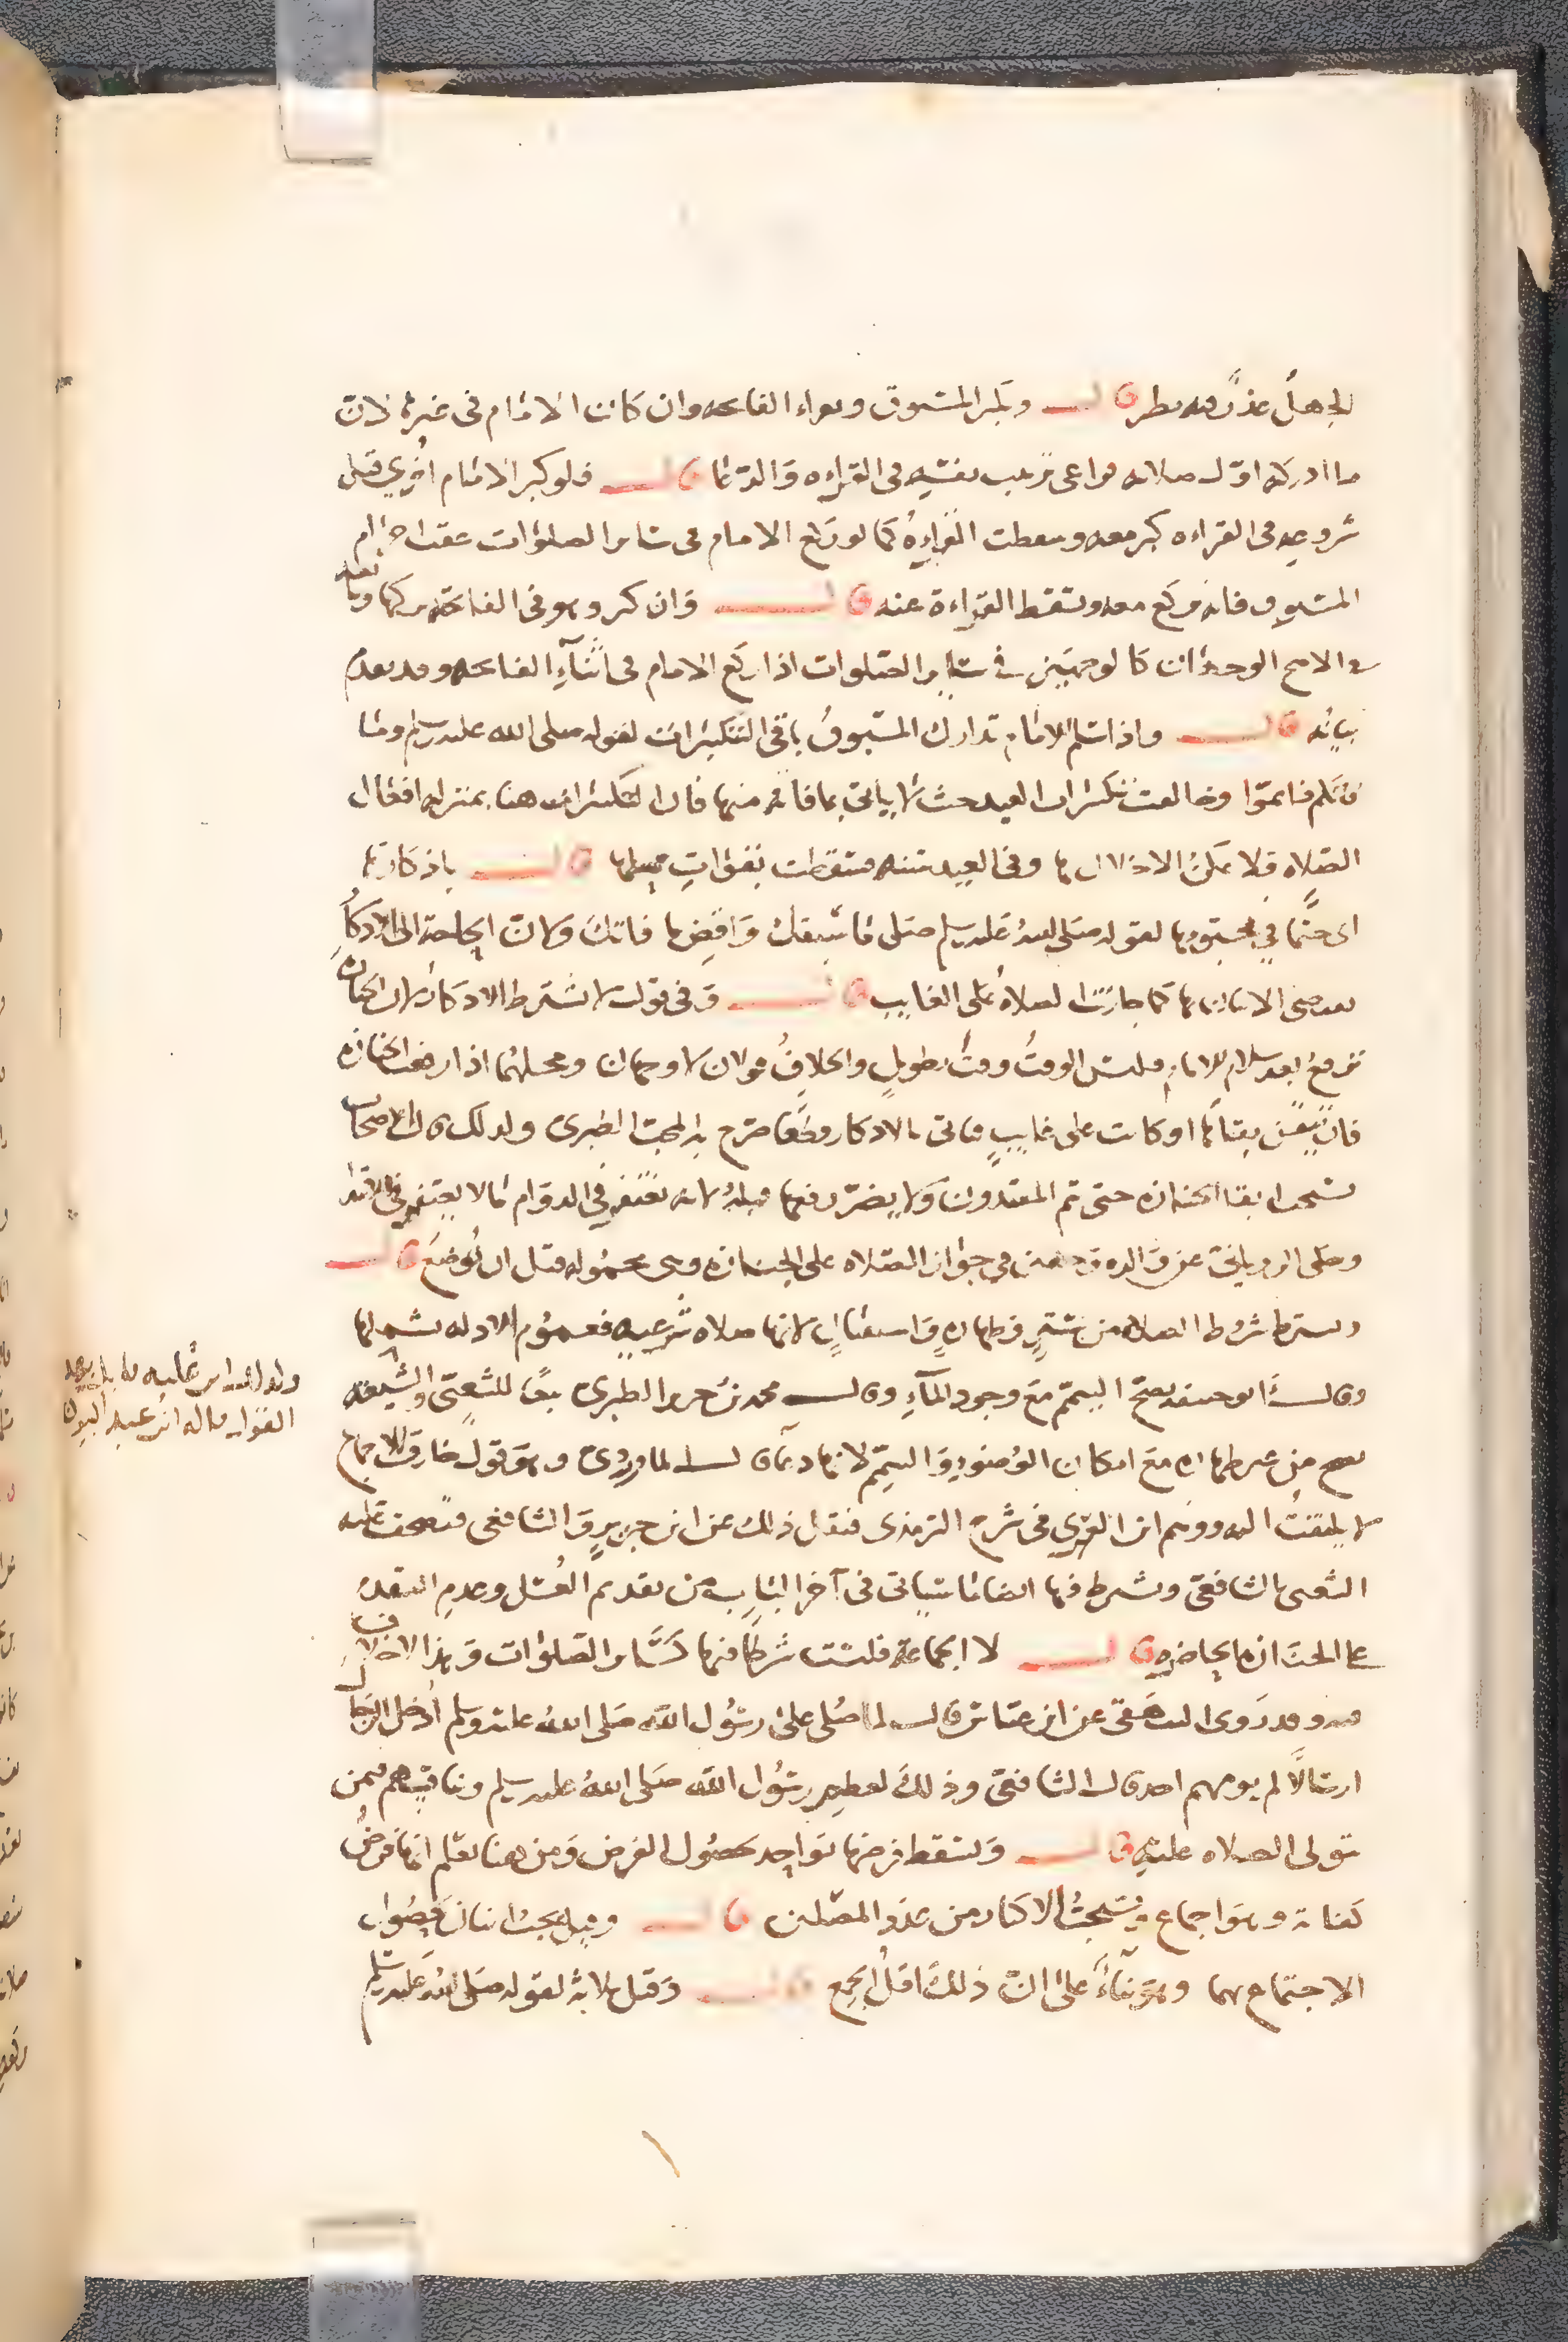 الجهل عذر فيه نظر قال ويكبر المسبوق ويقرأ الفاتحة وان كان الامام في غيرها لان
ما ادركه اول صلاته فراعى ترتيب نفسه في القراءه والدعا قال فلو كبر الامام اخرى قبل
شروعه في القراءه كبر معه وسقطت القراءة كما لو ركع الامام في سائر الصلوات عقب احرام
المسبوق فانه يركع معه وتسقط القراءة عنه قال وان كبر وهو في الفاتحة تركها وتابعه
في الاصح الوجهان كالوجهين في ساير الصلوات اذا ركع الامام في اثناء الفاتحه وقد تقدم
بيانه قال واذا سلم الامام تدارك المسبوق باقي التكبيرات لقوله صلى الله عليه وسلم وما
فاتكم فاتموا وخالفت تكبيرات العيد حيث لا يأتي بما فاته منها فان التكبيرات هنا بمنزلة افعال
الصلاه فلا يمكن الاخلال بها وفي العيد سنه سقطت بفوات محلها قال باذكارها
اي حتما في محبتورها لقوله صلى الله عليه وسلم صلى ما سبقك واقض ما فاتك وكان الحاجة الى الاذكار
تقتضي الاتيان بها كما جازت الصلاة على الغايب قال وفي قول لا تشترط الاذكار لان الجنازه
ترفع بعد سلام الامام فليس الوقت وقت تطويل والخلاف قولان لا وجهان ومحلهما اذا رفعت الجنازه
فان تيقن بقاها او كانت على غايب فياتي بالاذكار قطعا صرح به المحب الطبري ولذلك قال الاصحاب
يستحب ابقا الجنازه حتى يتم المقتدون ولا يضر رفعها قبله لانه يغتفر في الدوام ما لا يغتفر في الابتدا
وحكى الروياني عن والده وجهين في جواز الصلاه على الجنازه وهي محموله قبل ان توضع قال
ويشترط شروط الصلاه من ستر وطهارة واستقبال لانها صلاه شرعيه فعموم الادله تشملها
وقال ابو حنيفه يصح التيمم مع وجود الماء وقال محمد بن جرير الطبري تبعا للشعبي والشيعه
تصح من غير طهاره مع امكان الوضوء والتيمم لانها دعاء قال الماوردي وهو قول خارق للاجماع
لا يلتفت اليه ووهم ابن العربي في شرح الترمذي فنقل ذلك عن ابن جرير والشافعي فتصحف عليه
الشعبي بالشافعي وشرط فيها ايضا ما سياتي في اخر الباب من تقديم الغسل وعدم التقدم
على الجنازه الحاضره قال لا الجماعة فليست شرطا فيها كسائر الصلوات وهذا لا خلاف
فيه وقد روى البيهقي عن ابن عباس قال لما صلى على رسول الله صلى الله عليه وسلم ادخل الرجال
ارسالا لم يؤمهم احد قال الشافعي وذلك لعظم رسول الله صلى الله عليه وسلم وتنافسهم فيمن
يتولى الصلاه عليه قال ويسقط فرضها بواحد لحصول الغرض ومن هنا يعلم انها فرض
كفاية وهو اجماع ويستحب الاكثار من عدد المصلين قال وقيل يجب اثنان لحصول
الاجتماع بهما وهو بناء على ان ذلك اقل الجمع قال وقيل ثلاثه لقوله صلى الله عليه وسلم